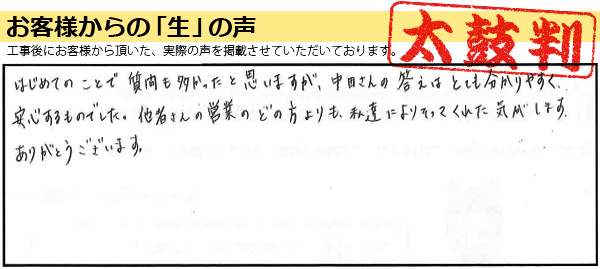 お客様からの「生」の声
工事後にお客様から頂いた、実際の声を掲載させていただいております。
太鼓判
はじめてのことで質問も多かったと思いますが、中田さんの答えはとても分かりやすく、
安心するものでした。他者さんの営業のどの方よりも、私達によりそってくれた気がします。
ありがとうございます。